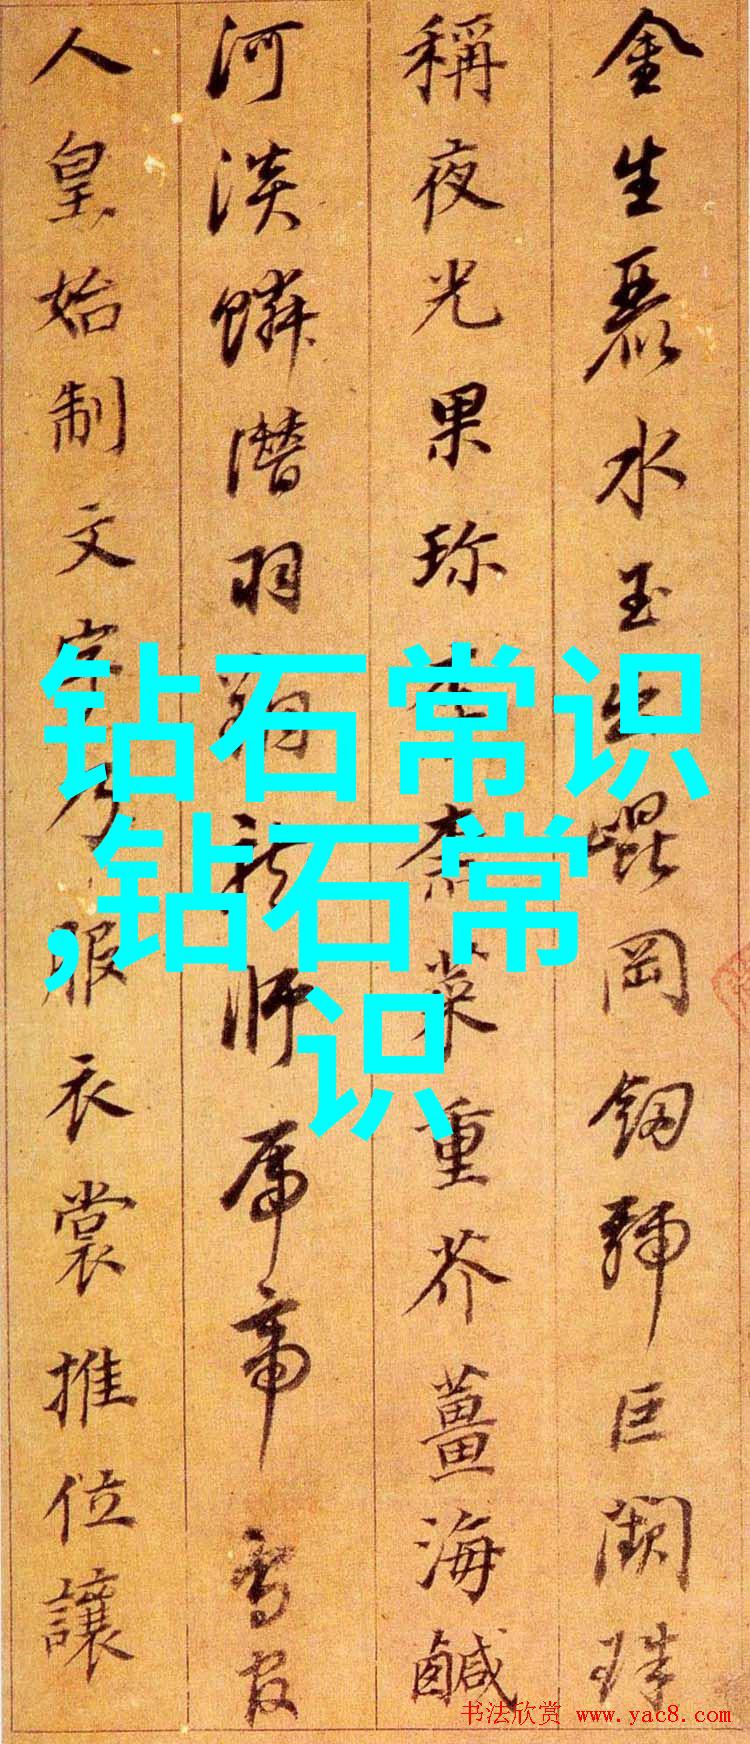 金生麗水玉出崐岡劒號巨闕珠
稱夜光果珎李柰菜重芥薑海鹹
河淡鱗潛羽翔龍師帝鳥官
人皇始制文字乃服衣裳推位讓
钻石常识
,钻石常
识
书法欣赏 www.yac8.com